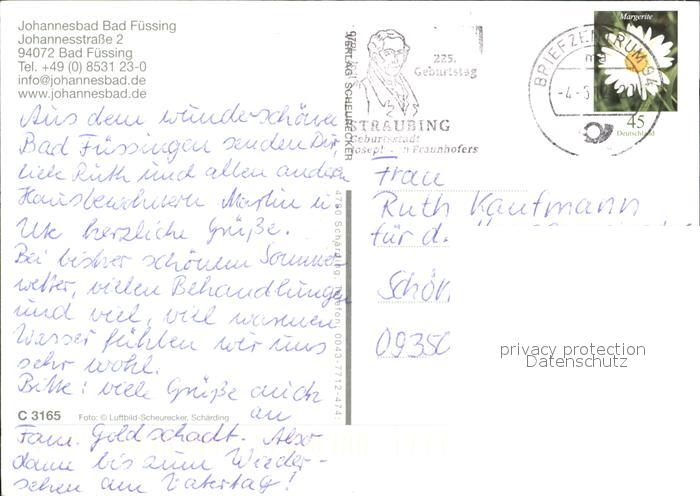 Johannesbad Bad Füssing
Johannesstraße 2
94072 Bad Füssing
Tel. +49 (0) 8531 23-0
info@johannesbad.de
www.johannesbad.de
Aus dem wunderschönen
Bad Füssingen senden Dir,
liebe Ruth und allen anderen
Hausbewohnern Martin u.
Ute herzliche Grüße.
Bei bisher schönem Sommer-
wetter, vielen Behandlungen
und viel, viel warmen
Wasser fühlen wir uns
sehr wohl.
Bitte: viele Grüße auch
an
Fam. Goldschadt. Also
dann bis zum Wieder-
sehen am Vatertag!
C 3165 Foto: © Luftbild-Scheurecker, Schärding
VERLAG SCHEURECKER
4780 Schärding, Telefon 0043-7712-474
225.
Geburtstag
STRAUBING
Geburtsstadt
Josef von Fraunhofers
BRIEFZENTRUM 94
ma
-4.-5
Margerite
45
Deutschland
Frau
Ruth Kaufmann
für d.
Schön
09350
privacy protection
Datenschutz